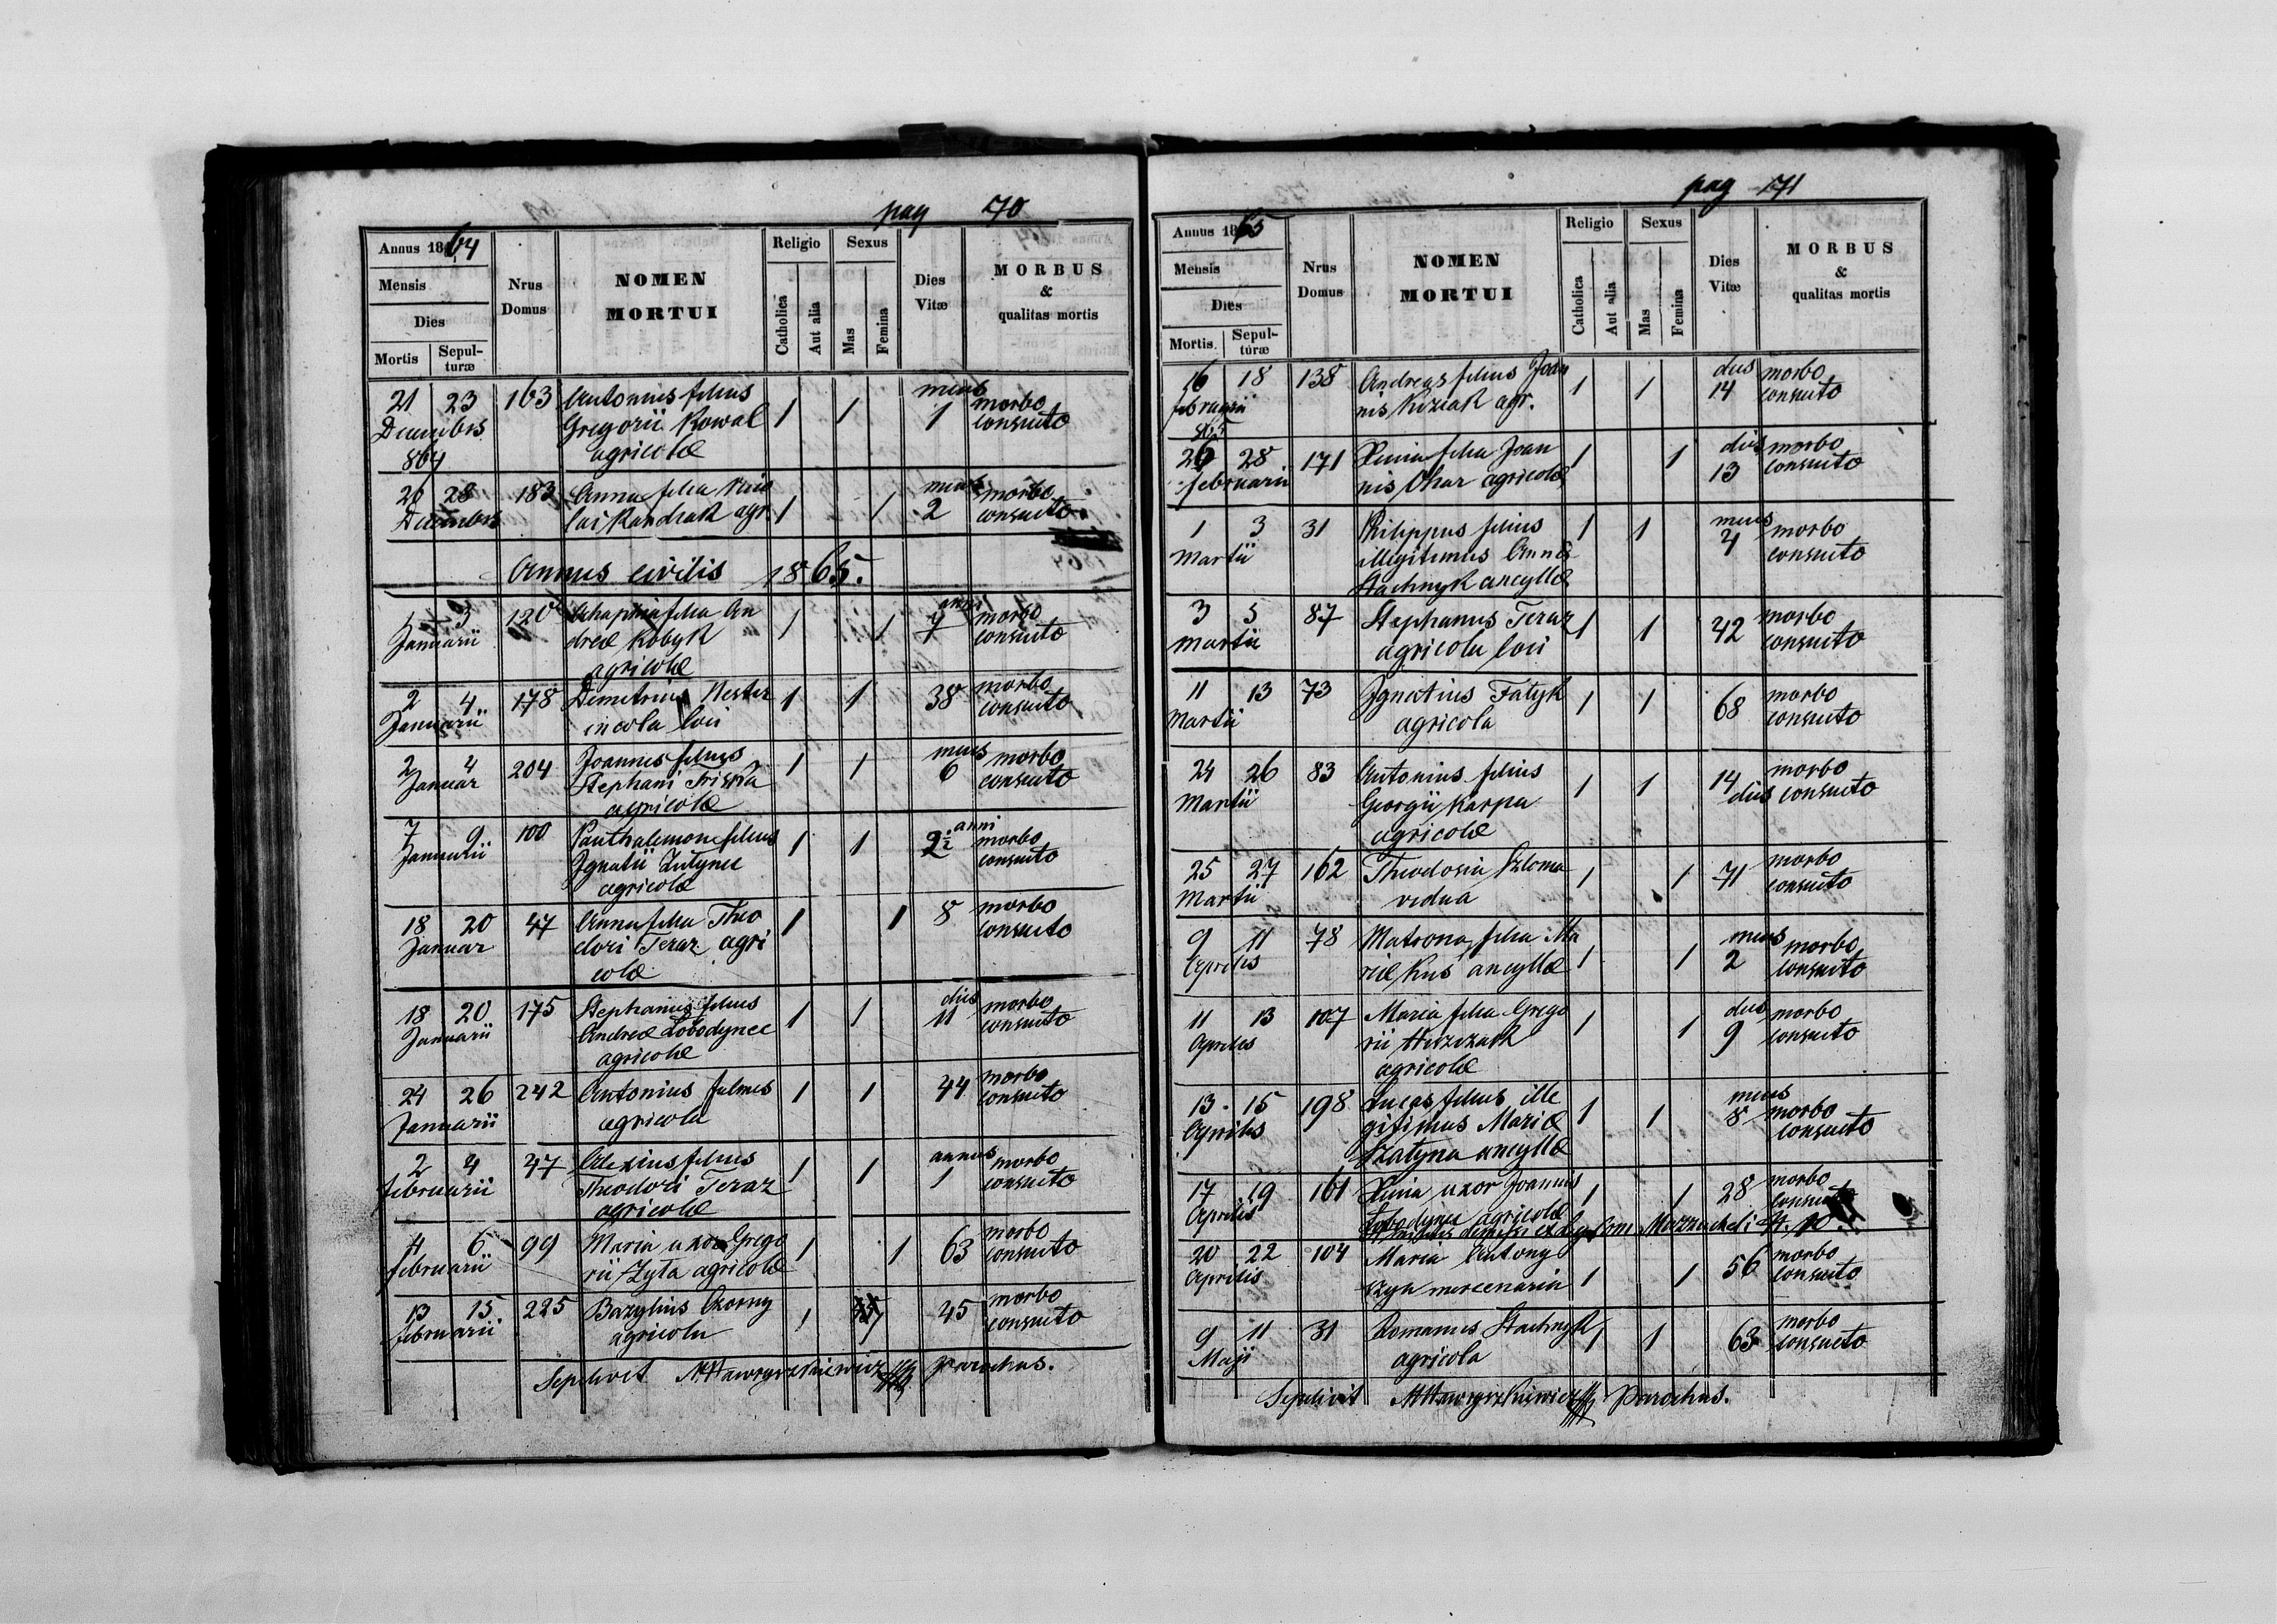 pag 70
Annus 1864
Mensis
Dies
Mortis Sepul-
turæ
Nrus
Domus
NOMEN
MORTUI
Religio
Catholica
Aut alia
Sexus
Mas
Femina
Dies
Vitæ
MORBUS
&
qualitas mortis
21 23 163 Antonius filius 1 1 mens 1 morbo
Decembris Gregorii Kowal consueto
864 agricolæ
28 183 Anna filia Nico 1 1 mens 2 morbo
Decembris lai Kandrak agr. consueto
Annus civilis 1865.
1 3 120 filia An 1 1 anni morbo
Januarii dreæ Kobyk consueto
agricolæ
2 4 178 Demetrius Nester 1 1 38 morbo
Januarii incola loci consueto
2 4 204 Joannes filius 1 1 mens 6 morbo
Januar Stephani consueto
agricolæ
7 9 100 Panthalemon filius 1 1 anni 2½ morbo
Januarii Ignatii consueto
agricolæ
18 20 47 Anna filia Theo 1 1 8 morbo
Januar dori Teraz agri consueto
colæ
18 20 175 Stephanus filius 1 1 dies 11 morbo
Januarii Andreæ Lobodynec consueto
agricolæ
24 26 242 Antonius 1 1 44 morbo
Januarii agricola consueto
2 4 47 Alexius filius 1 1 annus 1 morbo
februarii Theodori Teraz consueto
agricolæ
4 6 99 Maria uxor Grego 1 1 63 morbo
februarii rii Zyła agricolæ consueto
13 15 225 Bazylius Czorny 1 45 morbo
februarii agricola consueto
Sepelivit parochus.
pag 71
Annus 1865
Mensis
Dies
Mortis. Sepul-
turæ
Nrus
Domus
NOMEN
MORTUI
Religio
Catholica
Aut alia
Sexus
Mas
Femina
Dies
Vitæ
MORBUS
&
qualitas mortis
16 18 138 Andreas filius Joan 1 1 dies 14 morbo
februarii nis Kiziak agr. consueto
865
26 28 171 Xenia filia Joan 1 1 dies 13 morbo
februarii nis agricolæ consueto
1 3 31 Philippus filius 1 1 mens 4 morbo
Martii illegitimus Annæ consueto
Stachnyk ancyllæ
3 5 87 Stephanus Teraz 1 1 42 morbo
Martii agricola loci consueto
11 13 73 Ignatius Fatyk 1 1 68 morbo
Martii agricola consueto
24 26 83 Antonius filius 1 1 14 morbo
Martii Georgii Karpa dies consueto
agricolæ
25 27 162 Theodosia 1 1 71 morbo
Martii vidua consueto
9 11 78 Matrona filia Ma 1 1 mens 2 morbo
Aprilis riæ Kus ancyllæ consueto
11 13 107 Maria filia Grego 1 1 dies 9 morbo
Aprilis rii consueto
agricolæ
13 15 198 Lucas filius ille 1 1 mens 8 morbo
Aprilis gitimus Mariæ consueto
ancyllæ
17 19 161 Xenia uxor Joannis 1 1 28 morbo
Aprilis Lobodynec agricolæ consueto
20 22 104 Maria Antony 1 1 56 morbo
Aprilis mercenaria consueto
9 11 31 Romanus Stachnyk 1 1 63 morbo
Maji agricola consueto
Sepelivit Parochus.